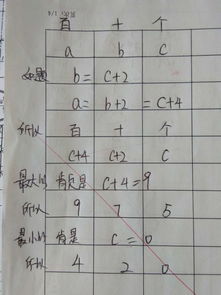 百 十 个
a b c
如题 b = c+2
a = b+2 = c+4
所以 百 十 个
c+4 c+2 c
最大的 肯定是 c+4=9
所以 9 7 5
最小的 肯是 c=0
所以 4 2 0